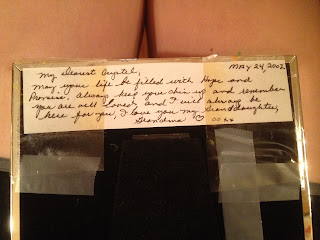 My Dearest Crystal, MAY 24, 2002
May your life be filled with Hope and
Promise, always keep your chin up and remember
you are well loved, and I will always be
here for you, I love you my Granddaughter,
Grandma ♡ OOXX